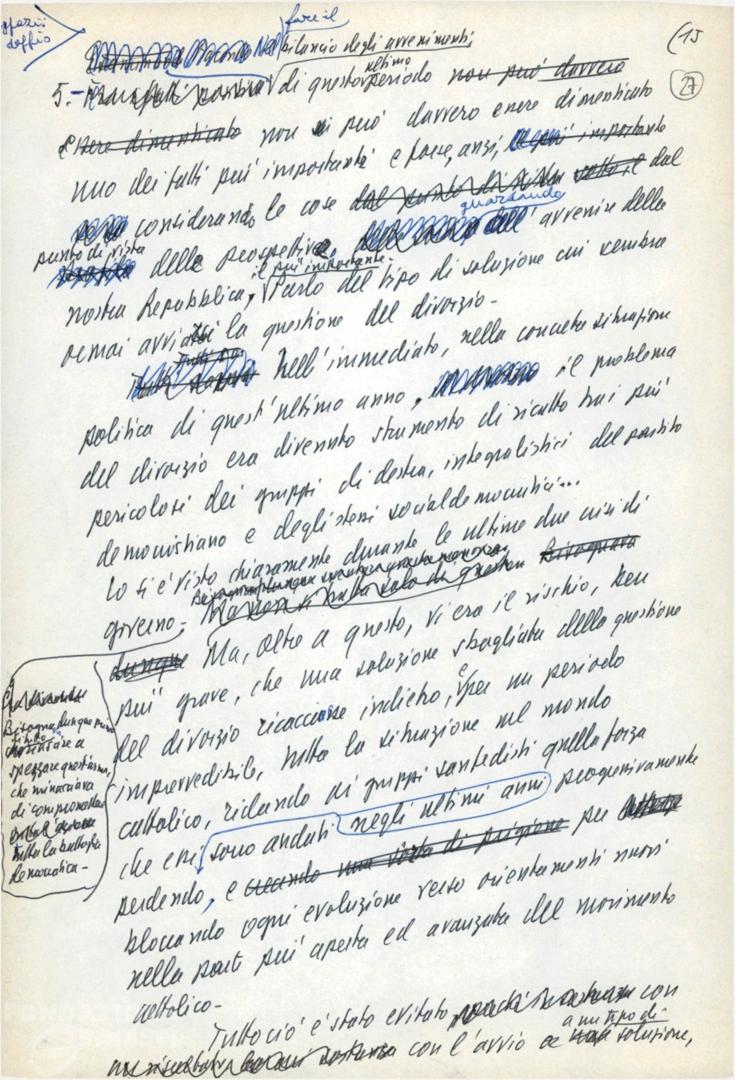 spazio
doppio
(15
27
fare il
bilancio degli avvenimenti
5.- di questo ultimo periodo non può davvero
essere dimenticato non si può davvero essere dimenticato
uno dei fatti più importanti e forse, anzi, importante
considerando le cose dal punto di vista dal
punto di vista della prospettiva, guardando all'avvenire della
nostra Repubblica, il più importante. Parlo del tipo di soluzione cui sembra
ormai avviarsi la questione del divorzio.
Nell'immediato, nella concreta situazione
politica di quest'ultimo anno, il problema
del divorzio era divenuto strumento di ricatto tra i più
pericolosi dei gruppi di destra, integralistici del partito
democristiano e degli stessi socialdemocratici...
Lo si è visto chiaramente durante le ultime due crisi di
governo. Bisognava
dunque Ma, oltre a questo, vi era il rischio, ben
più grave, che una soluzione sbagliata della questione
del divorzio ricacciasse indietro, e per un periodo
imprevedibile, tutta la situazione nel mondo
cattolico, ridando ai gruppi sanfedisti quella forza
che essi sono andati negli ultimi anni progressivamente
perdendo, e creando una sorta di prigione per
bloccando ogni evoluzione verso orientamenti nuovi
nella parte più aperta ed avanzata del movimento
cattolico.
Tutto ciò è stato evitato con
con l'avvio a un tipo di soluzione,
Bisogna dunque
a
spezzare quest'arma,
che minacciava
di compromettere
tutta la battaglia
democratica.